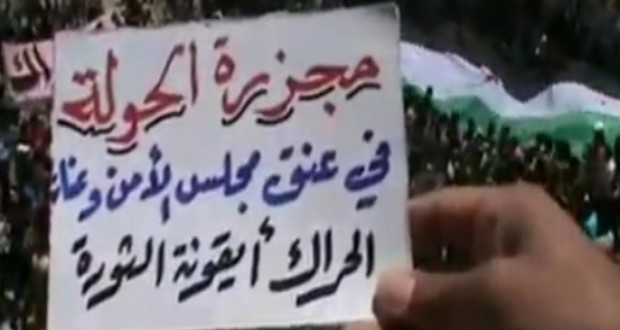 مجزرة الحولة
في عنق مجلس الأمن وعنان
الحراك أيقونة الثورة